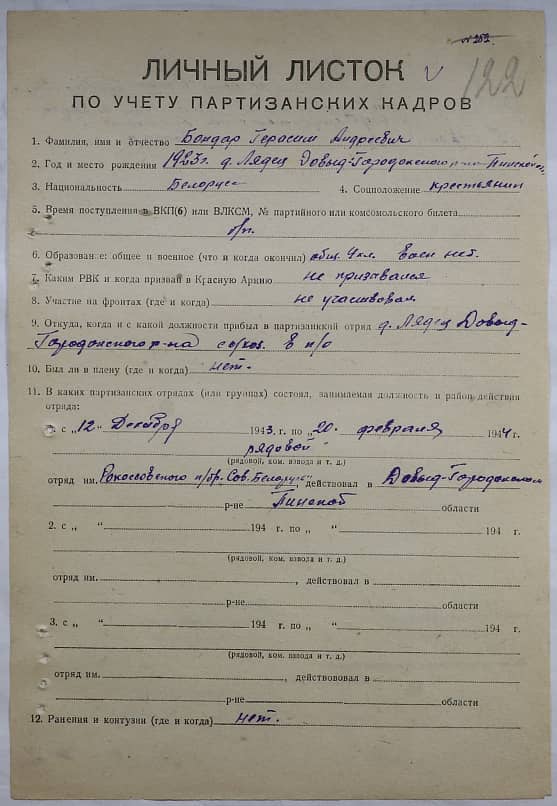 № 252
122
ЛИЧНЫЙ ЛИСТОК v
ПО УЧЕТУ ПАРТИЗАНСКИХ КАДРОВ
1. Фамилия, имя и отчество Бондар Герасим Андреевич
2. Год и место рождения 1923г. д. Лядец Довыд-Городокского р-на Пинской
3. Национальность Белорус 4. Соцположение крестьянин
5. Время поступления в ВКП(б) или ВЛКСМ, № партийного или комсомольского билета
б/п.
6. Образован е: общее и военное (что и когда окончил) общ. 4 кл. Воен нет.
7. Каким РВК и когда призван в Красную Армию не призывался
8. Участие на фронтах (где и когда) не участвовал
9. Откуда, когда и с какой должности прибыл в партизанкой отряд д. Лядец Довыд-
Городокского р-на с/хоз. В п/о
10. Был ли в плену (где и когда) нет.
11. В каких партизанских отрядах (или группах) состоял, занимаемая должность и район действия
отряда:
1. с „12" Декабря 1943 г. по „20. февраля 1944 г.
рядовой
(рядовой, ком. взвода и т. д.)
отряд им. Рокоссовского п/бр. Сов. Белорусс , действовал в Довыд-Городокском
р-не Пинской области
2. с „ " 194 г. по „ " 194 г.
(рядовой, ком. взвода и т. д.)
отряд им. , действовал в
р-не области
3. с „ " 194 г. по „ " 194 г.
(рядовой, ком. взвода и т. д.)
отряд им. , действововал в
р-не области
12. Ранения и контузии (где и когда) нет.